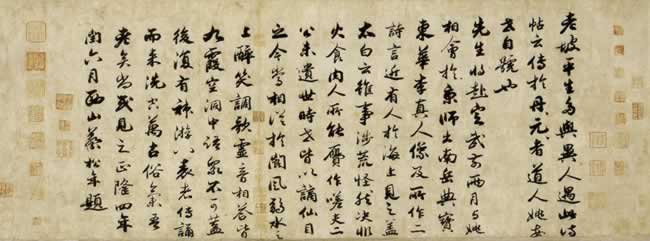 老坡平生多與異人遇此詩
帖云傳於丹元丹元者道人姚安
世自號也
先生將赴定武前兩月與姚
相會於京師出南岳典寶
東華李真人像及所作二
詩言近有人於海上見之蓋
太白云雖事涉荒怪然決非
火食肉人所能贋作嗟夫二
公未遺世時或皆以謫仙目
之今當相從於閬風弱水之
上醉笑調歌靈音相答皆
九霞空洞中語不可蓋
後復有神游八表者傳誦
而來洗空萬古俗氣吾
老矣尚或見之正隆四年
閏六月西山蔡松年題